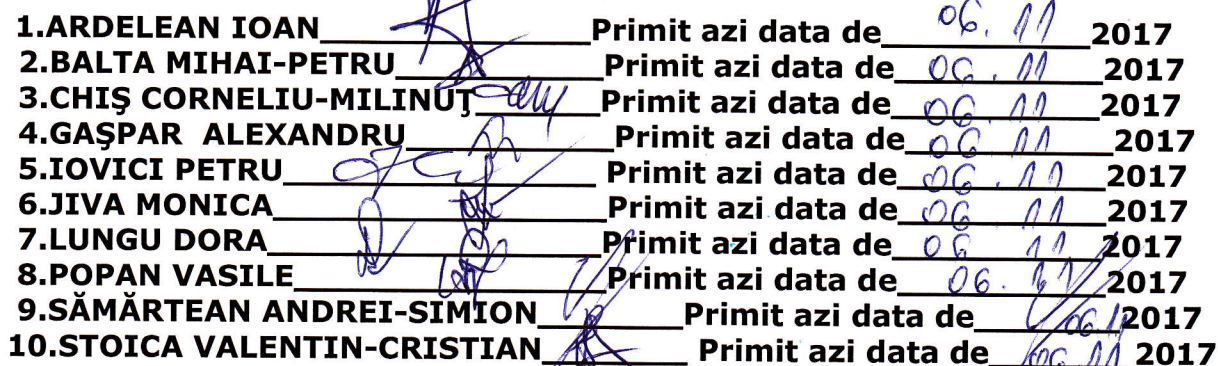 1.ARDELEAN IOAN____________Primit azi data de 06.11 2017
2.BALTA MIHAI-PETRU____________Primit azi data de 06.11 2017
3.CHIŞ CORNELIU-MILINUŢ____________Primit azi data de 06.11 2017
4.GAŞPAR ALEXANDRU____________Primit azi data de 06 11 2017
5.IOVICI PETRU____________Primit azi data de 06.11 2017
6.JIVA MONICA____________Primit azi data de 06 11 2017
7.LUNGU DORA____________Primit azi data de 06 11 2017
8.POPAN VASILE____________Primit azi data de 06.11 2017
9.SĂMĂRTEAN ANDREI-SIMION____________Primit azi data de 06.11 2017
10.STOICA VALENTIN-CRISTIAN____________Primit azi data de 06.11 2017